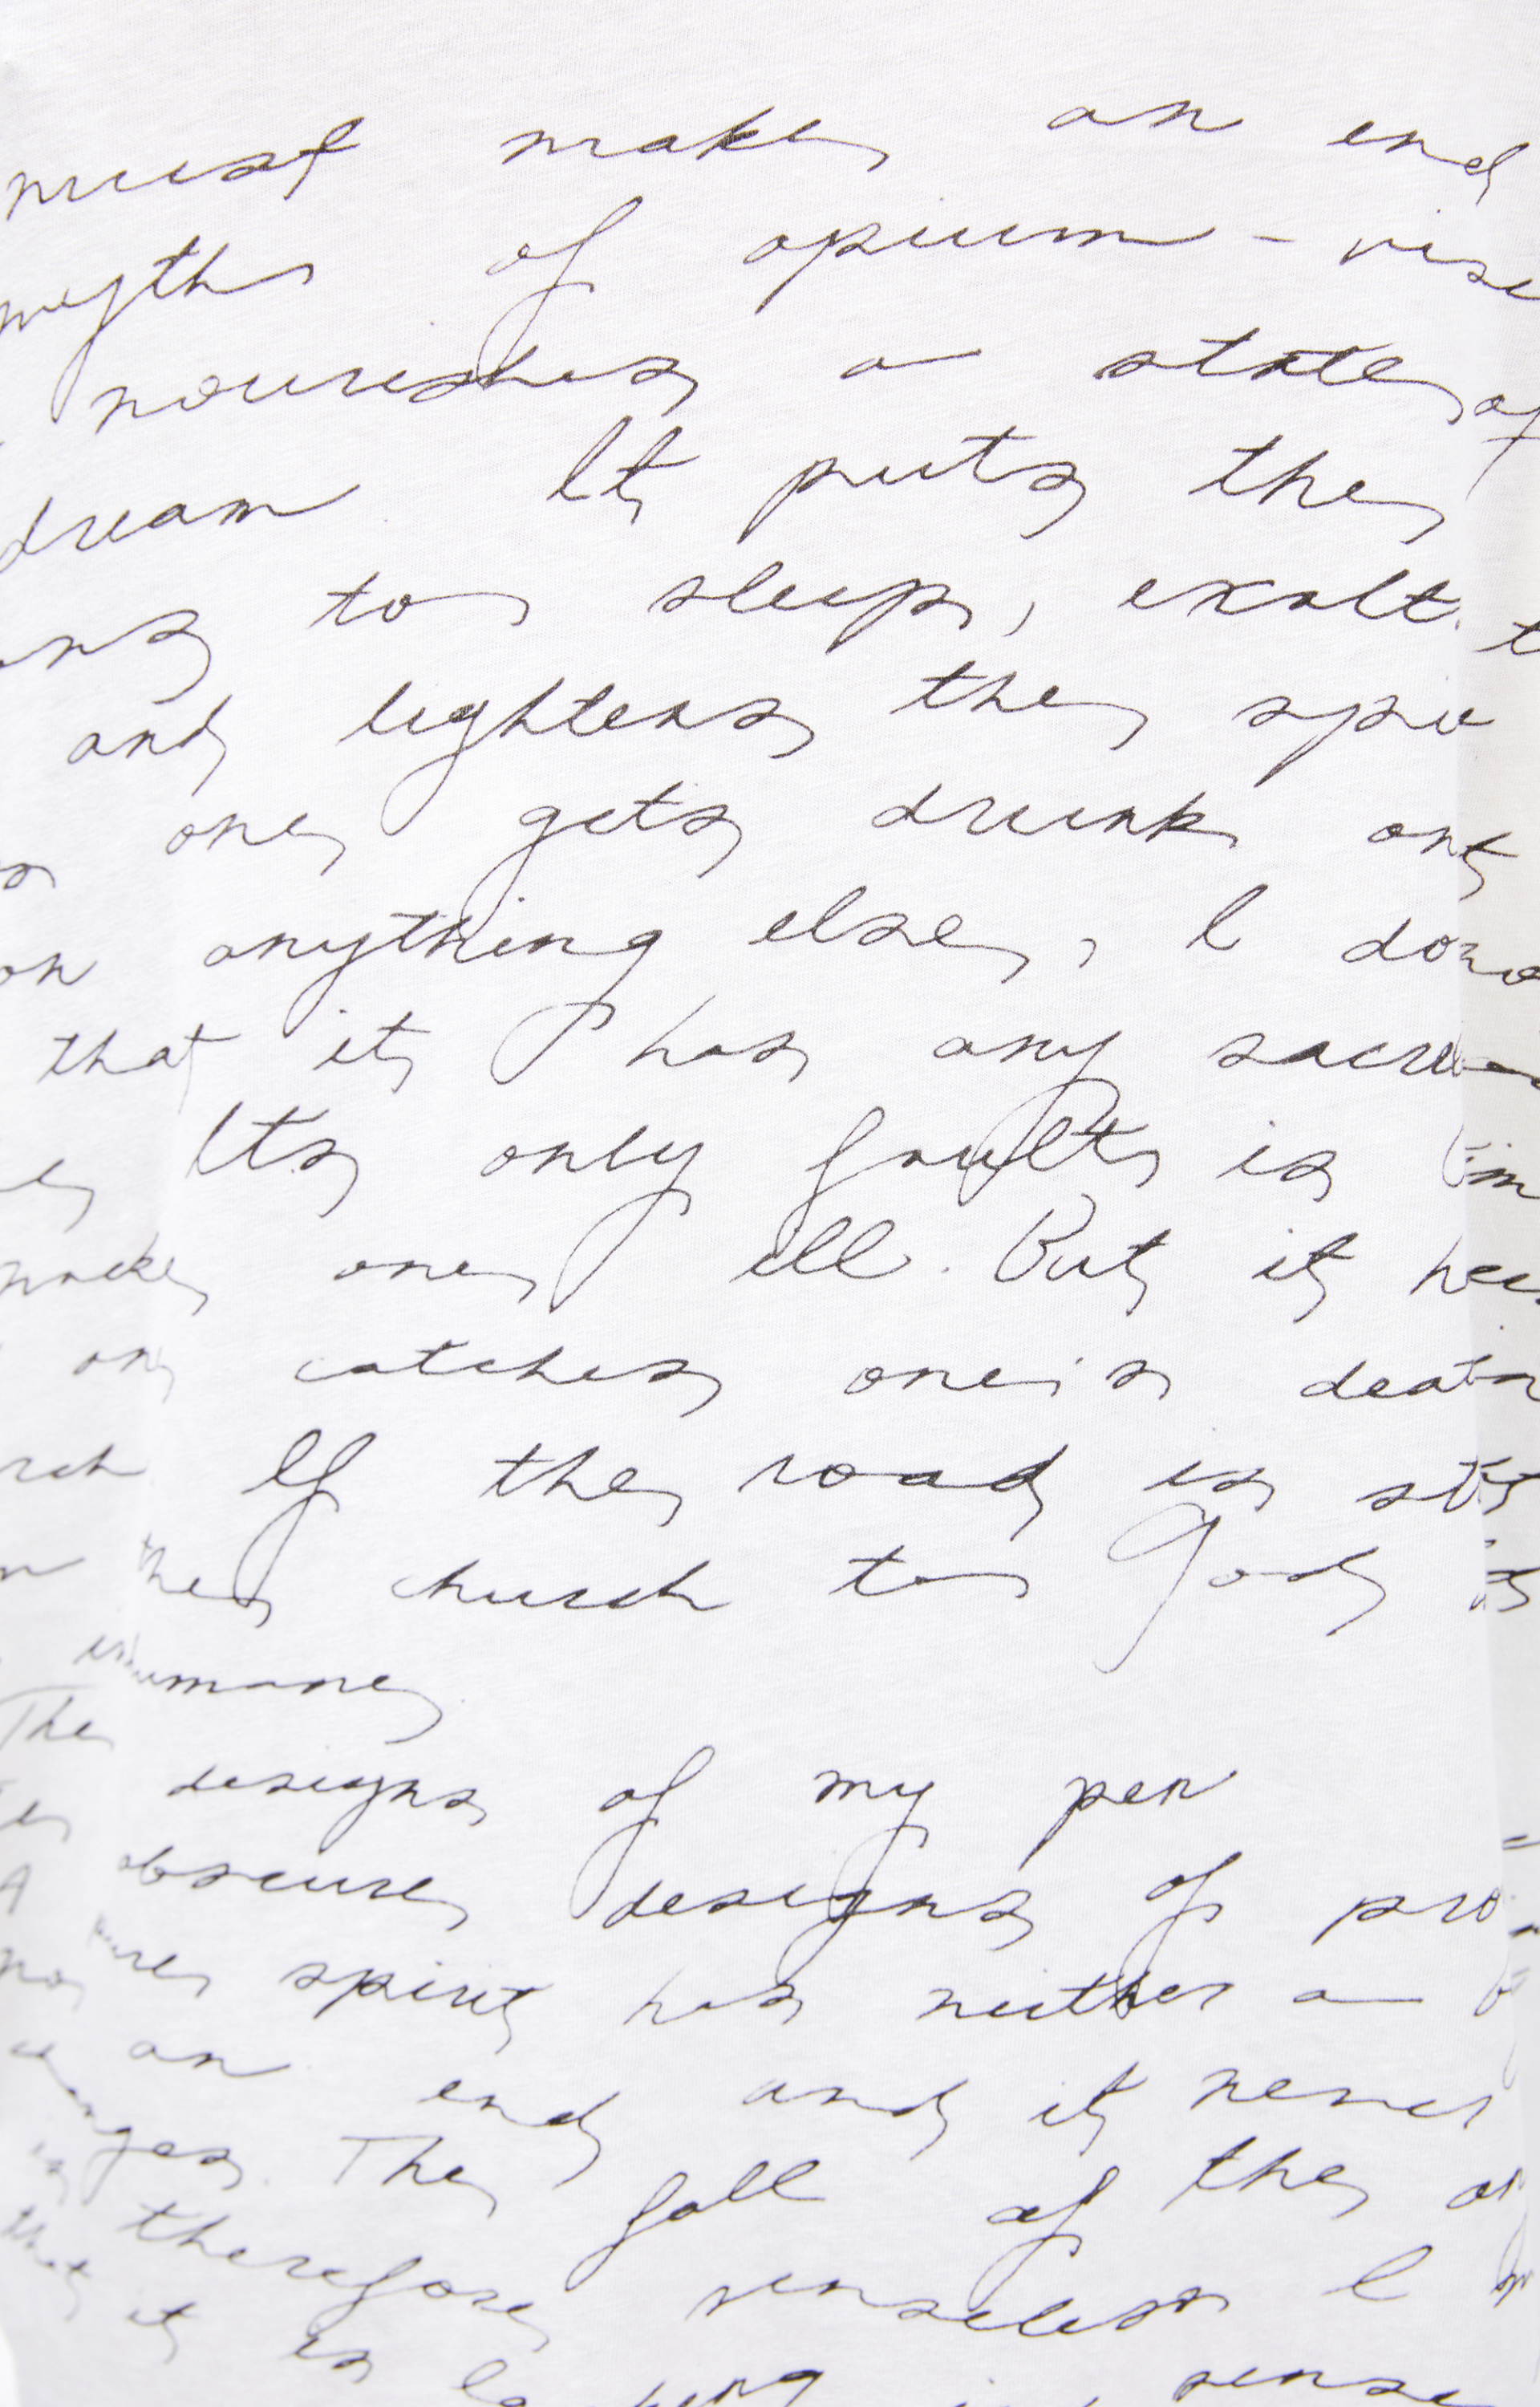 must make an end
myths of opium - vise
nourishes a state of
dream It puts the
ons to sleep, exalt. t
and lightens the spi
one gets drunk on
on anything else, I do
that it has any sacre
Its only fault is
makes one ill. But it
on catches one's death
rch If the road is st
the church to God
inhumane
The
designs of my pen
obscure designs of pro
spirit has neither a
an end and it never
The fall of the
therefore senseless I
that it is sense